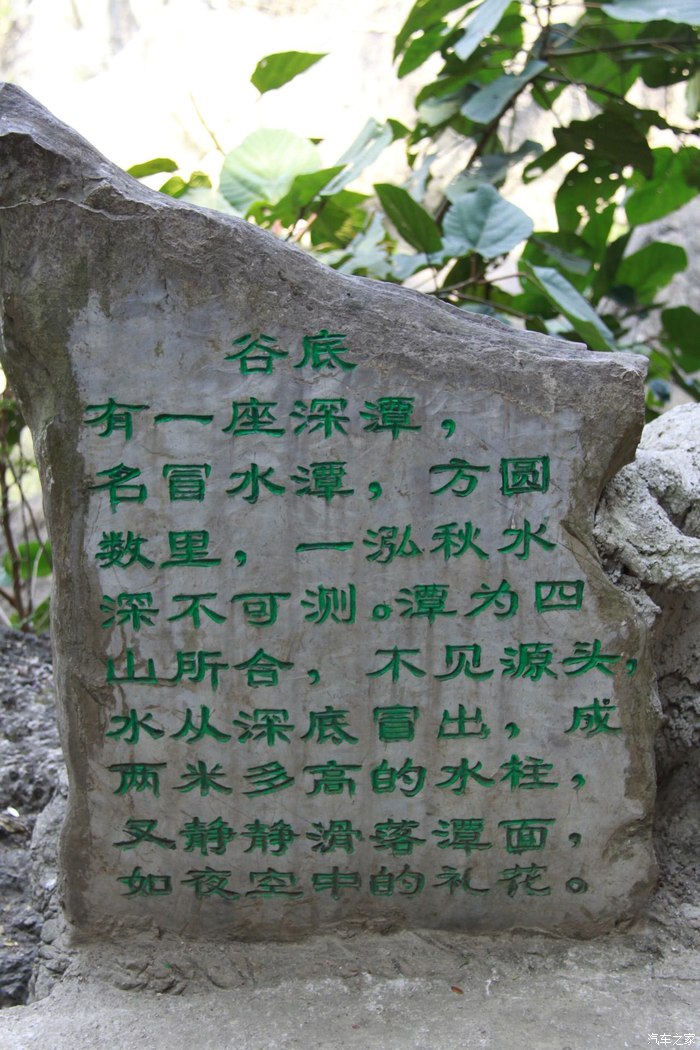 谷底
有一座深潭，
名冒水潭，方圆
数里，一泓秋水
深不可测。潭为四
山所合，不见源头，
水从深底冒出，成
两米多高的水柱，
又静静滑落潭面，
如夜空中的礼花。
汽车之家